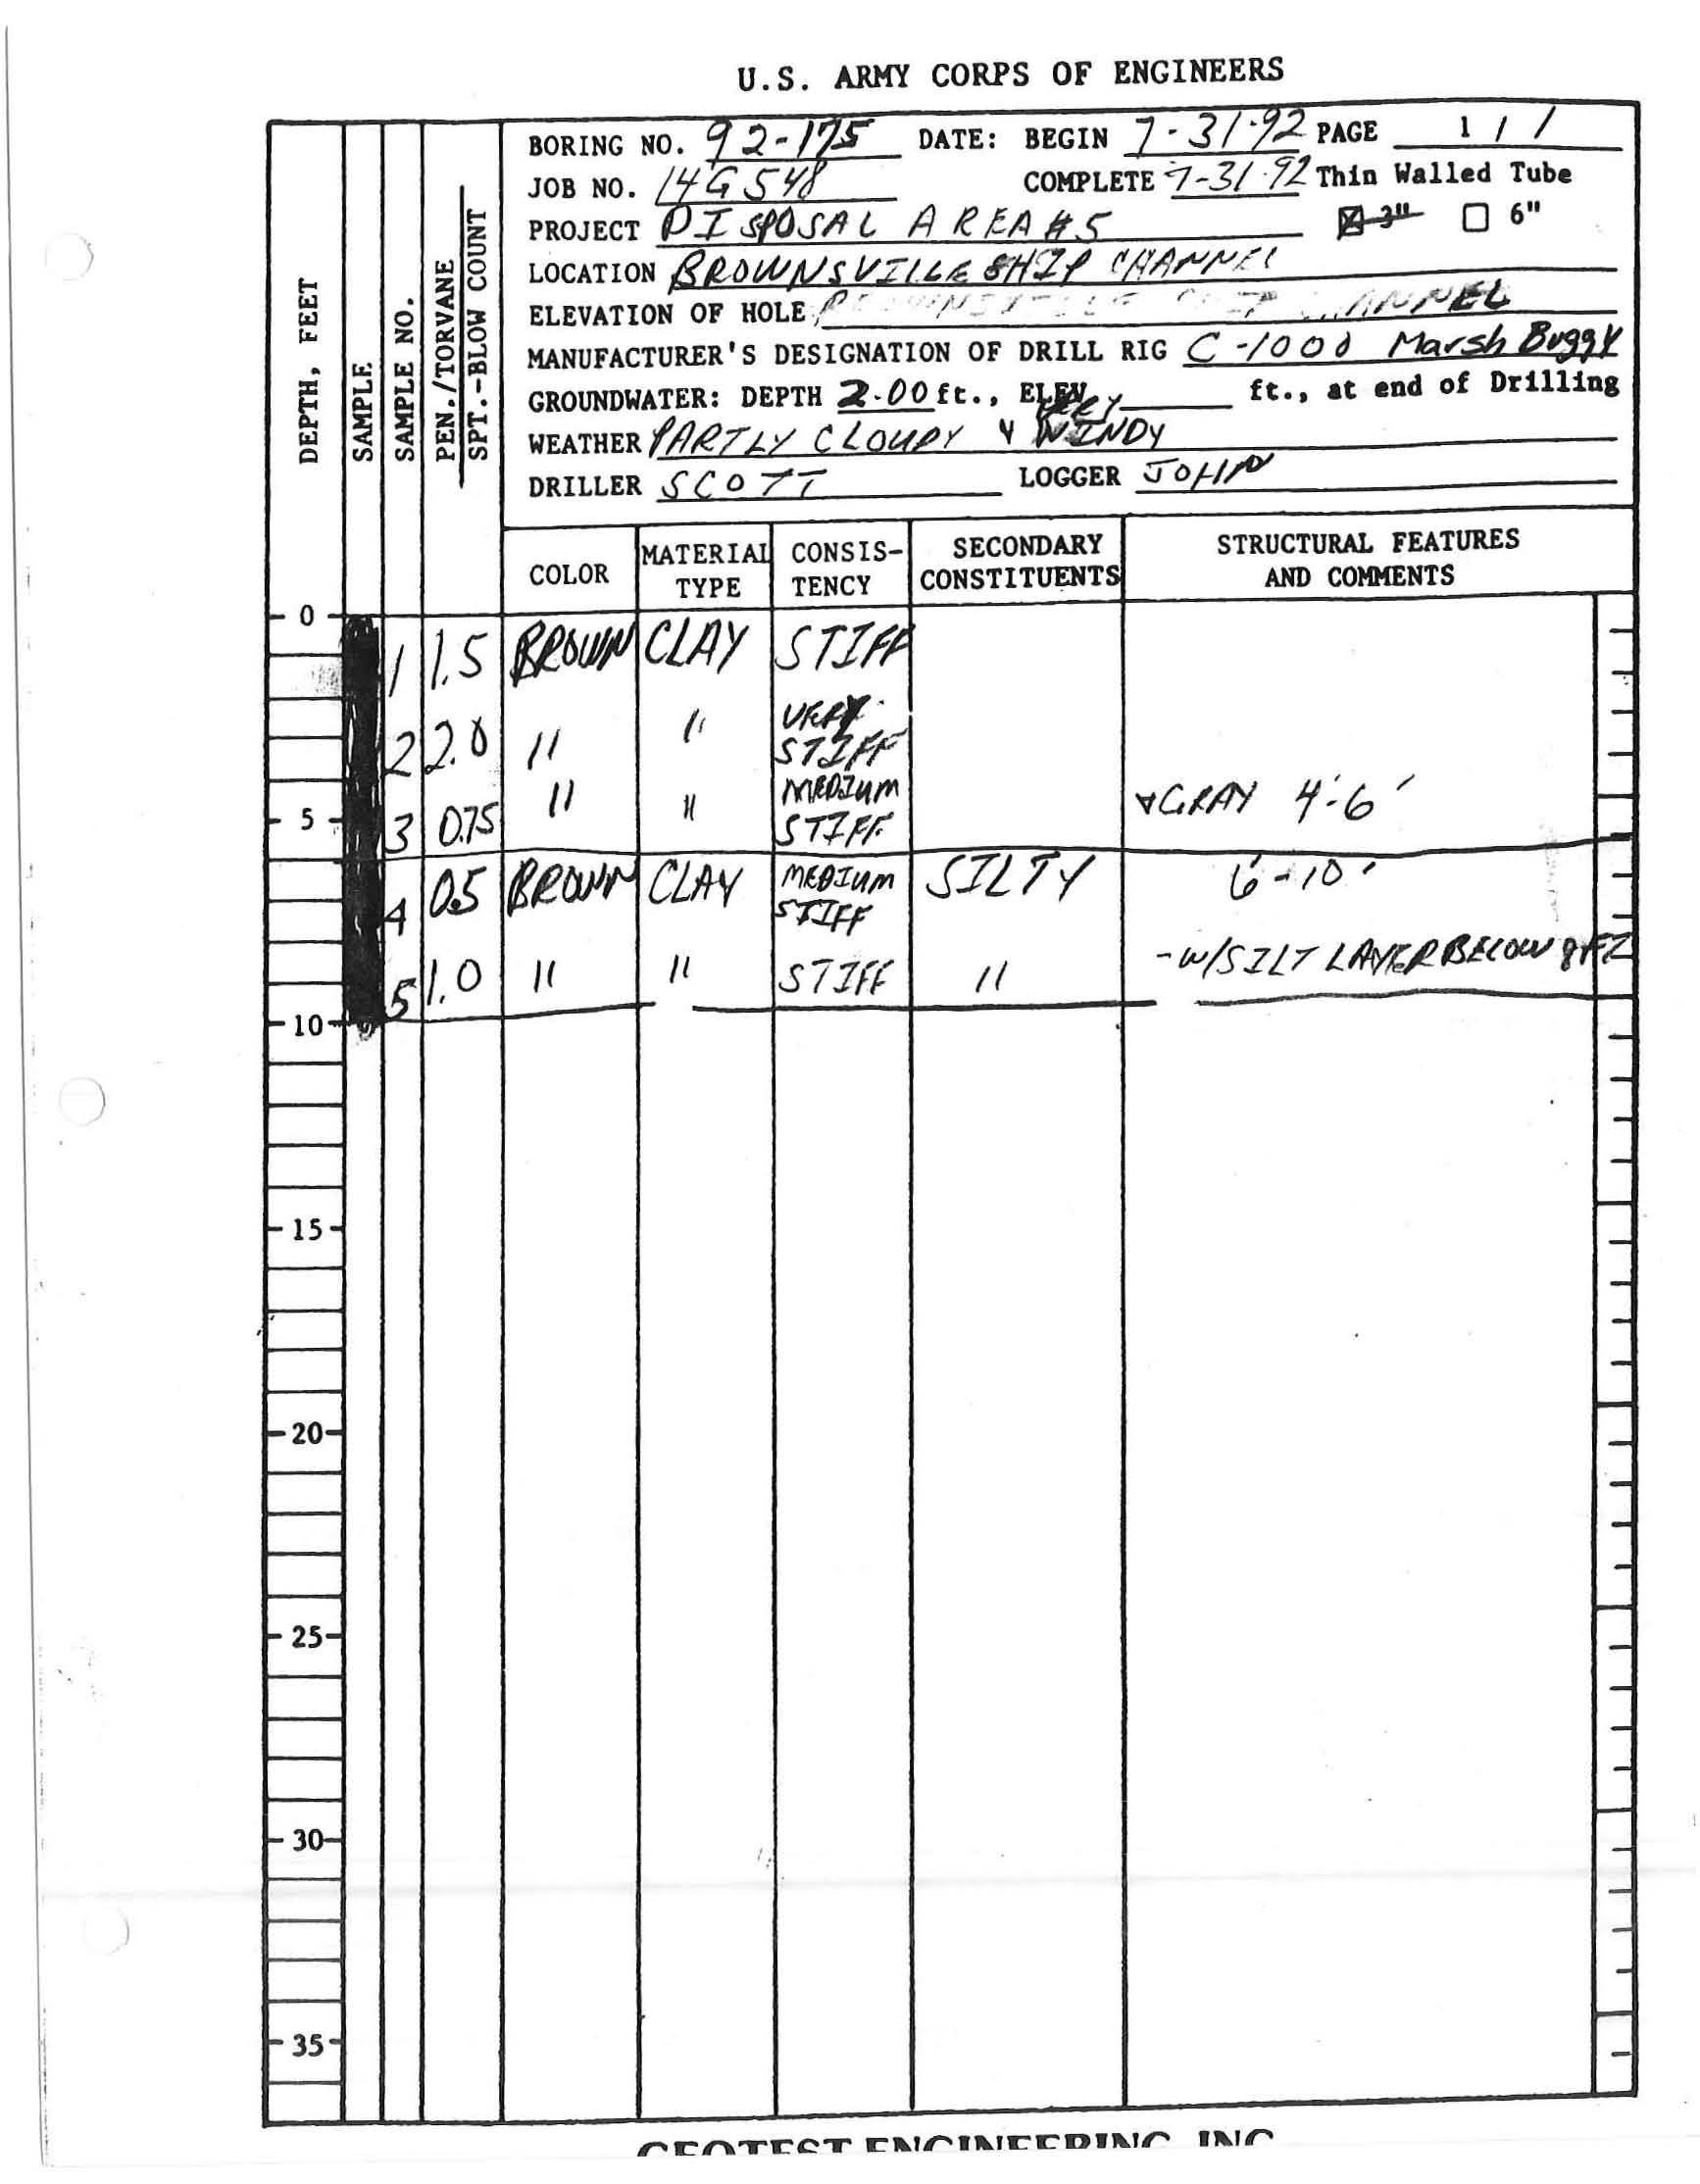 U.S. ARMY CORPS OF ENGINEERS
BORING NO. 92-175 DATE: BEGIN 7-31-92 PAGE 1 / 1
JOB NO. 14G548 COMPLETE 7-31-92 Thin Walled Tube
PROJECT DISPOSAL AREA #5 3" 6"
LOCATION BROWNSVILLE SHIP CHANNEL
ELEVATION OF HOLE CHANNEL
MANUFACTURER'S DESIGNATION OF DRILL RIG C-1000 Marsh Buggy
GROUNDWATER: DEPTH 2.00 ft., ELEV ft., at end of Drilling
WEATHER PARTLY CLOUDY & VERY WINDY
DRILLER SCOTT LOGGER JOHN
DEPTH, FEET
SAMPLE
SAMPLE NO.
PEN./TORVANE
SPT.-BLOW COUNT
COLOR MATERIAL TYPE CONSIS-TENCY SECONDARY CONSTITUENTS STRUCTURAL FEATURES AND COMMENTS
0
1 1.5 BROWN CLAY STIFF
2 2.0 " " VERY STIFF
5 3 0.75 " " MEDIUM STIFF &GRAY 4'-6'
4 0.5 BROWN CLAY MEDIUM STIFF SILTY 6'-10'
5 1.0 " " STIFF " -W/SILT LAYER BELOW 8 FT
10
15
20
25
30
35
GEOTEST ENGINEERING, INC.